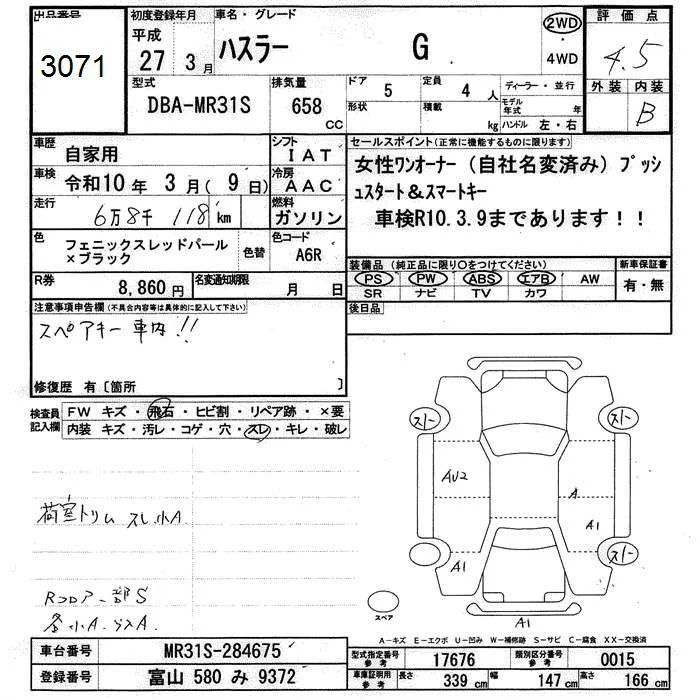 出品番号
3071
初度登録年月
平成
27 3月
車名・グレード
ハスラー G
2WD
4WD
評価点
4.5
外装 内装
B
型式
DBA-MR31S
排気量
658
CC
ドア
5
定員
4 人
形状
積載
kg
ディーラー・並行
モデル年式 年
ハンドル 左・右
車歴
自家用
シフト
IAT
車検
令和10年 3月( 9日)
冷房
AAC
走行
6万8千 118 km
燃料
ガソリン
セールスポイント(正常に機能するものに限ります)
女性ワンオーナー(自社名変済み) プッシ
ュスタート&スマートキー
車検R10.3.9まであります!!
色
フェニックスレッドパール
×ブラック
色替
色コード
A6R
装備品(純正品に限り○をつけてください)
PS PW ABS エアB AW
SR ナビ TV カワ
新車保証書
有・無
R券
8,860円
名変通知期限
月 日
後日品
注意事項申告欄(不具合内容等は具体的に記入して下さい)
スペアキー 車内!!
修復歴 有〔箇所 〕
検査員
記入欄
FW キズ・飛石・ヒビ割・リペア跡・×要
内装 キズ・汚レ・コゲ・穴・スレ・キレ・破レ
荷室トリム スレ小A
Rコロアー部S
各小A.
スト
スト
AU2
A
A1
A1
スト
A1
スペア
A-キズ E-エクボ U-凹み W-補修跡 S-サビ C-腐食 XX-交換済
車台番号
MR31S-284675
登録番号
富山 580 み 9372
型式指定番号
参考
17676
類別区分番号
参考
0015
車庫証明用
参考
長さ
339 cm
幅
147 cm
高さ
166 cm